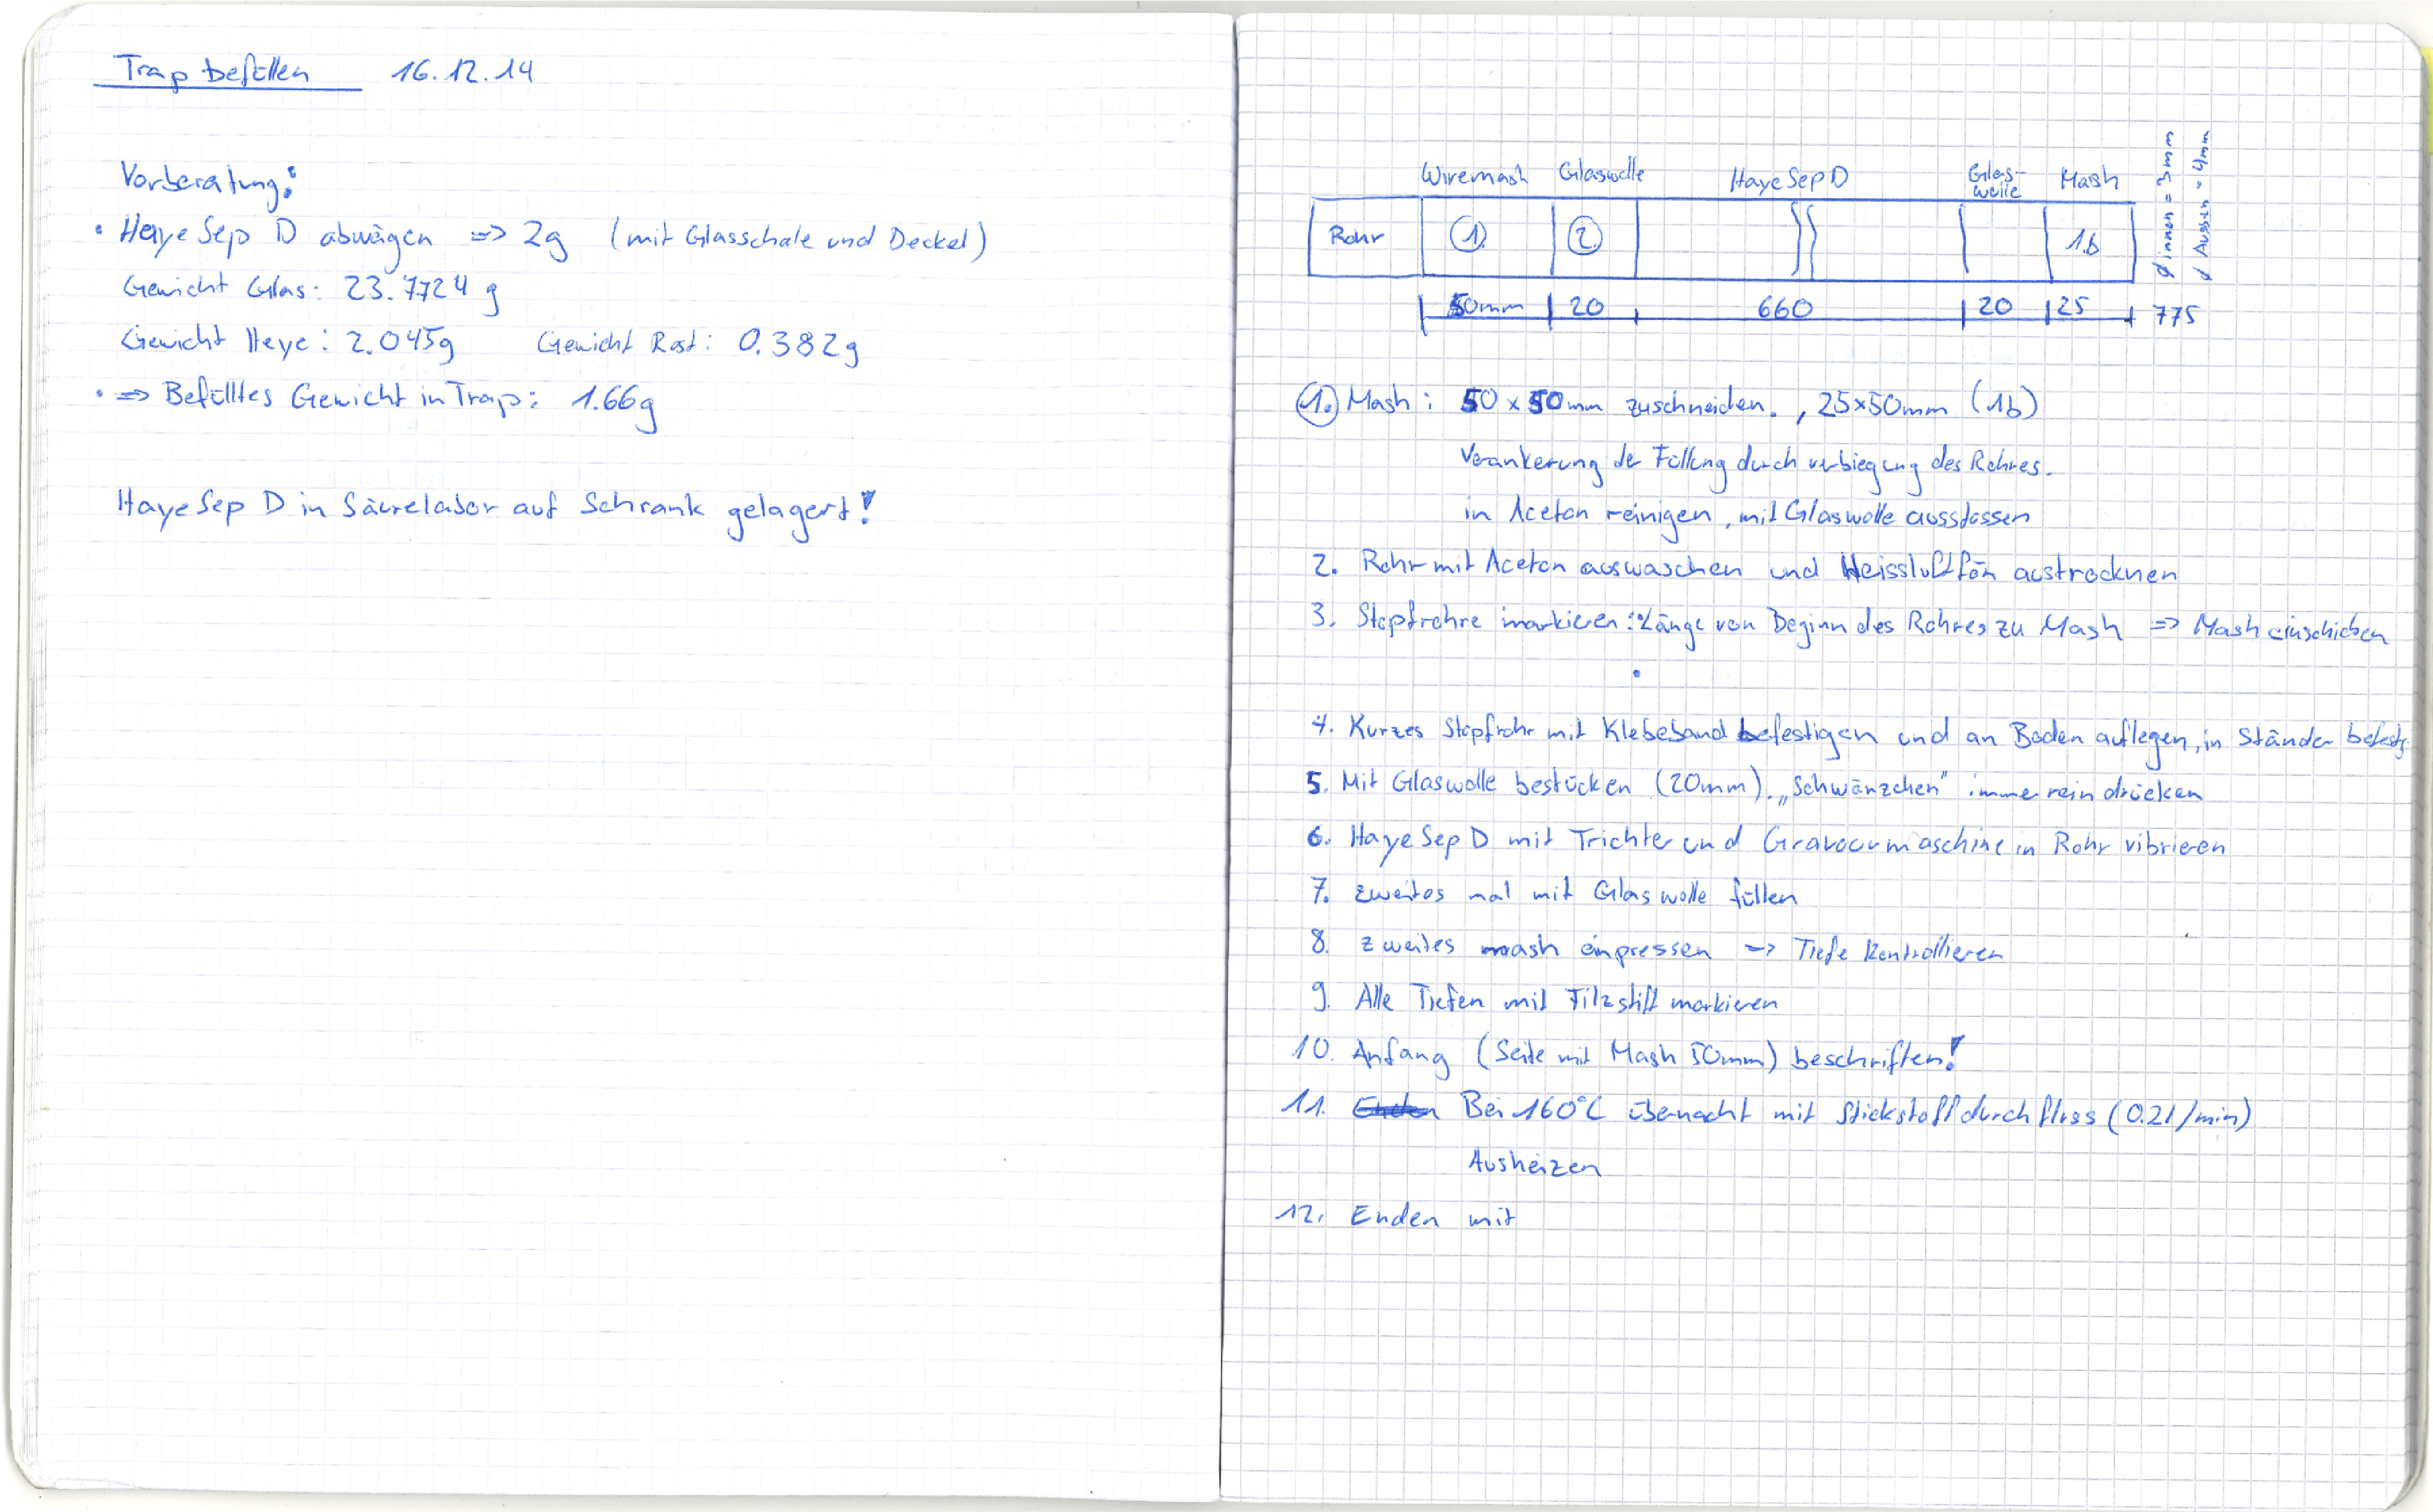 Trap befüllen 16.12.14
Vorberatung:
• HayeSep D abwägen => 2g (mit Glasschale und Deckel)
Gewicht Glas: 23.7724 g
Gewicht Heye: 2.045g Gewicht Rest: 0.382g
• => Befülltes Gewicht in Trap: 1.66g
HayeSep D in Säurelabor auf Schrank gelagert!
Wiremash Glaswolle HayeSep D Glas-
wolle Mash
Rohr 1. 2. 1b
Ø innen = 3mm
Ø Aussen = 4mm
50mm 20 660 20 25 775
1. Mash: 50 x 50mm zuschneiden. , 25x50mm (1b)
Verankerung der Füllung durch verbiegung des Rohres.
in Aceton reinigen, mit Glaswolle ausstossen
2. Rohr mit Aceton auswaschen und Heissluftfön austrocknen
3. Stopfrohre markieren: Länge von Beginn des Rohres zu Mash => Mash einschieben
4. Kurzes Stopfrohr mit Klebeband befestigen und an Boden auflegen, in Ständer
5. Mit Glaswolle bestücken (20mm). „Schwänzchen" immer rein drücken
6. HayeSep D mit Trichter und Gravourmaschine in Rohr vibrieren
7. zweites mal mit Glaswolle füllen
8. zweites mash einpressen -> Tiefe Kontrollieren
9. Alle Tiefen mit Filzstift markieren
10. Anfang (Seite mit Mash 50mm) beschriften!
11. Bei 160°C übernacht mit Stickstoffdurchfluss (0.2l/min)
Ausheizen
12. Enden mit